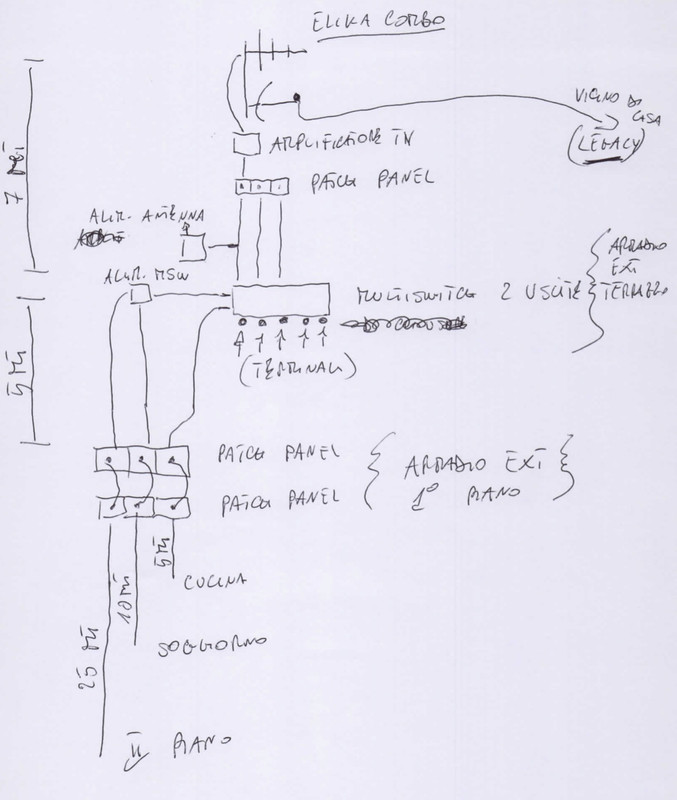 ELIKA COMBO
VICINO DI
CASA
(LEGACY)
AMPLIFICATORE IN
PATCH PANEL
7 MT
ALIM. ANTENNA
ALIM. MSW
MULTISWITCH 2 USCITE
ARMADIO
EXT
TERRAZZO
(TERMINALI)
5 MT
PATCH PANEL
PATCH PANEL
ARMADIO EXT
1° PIANO
5 MT
CUCINA
10 MT
SOGGIORNO
25 MT
II PIANO